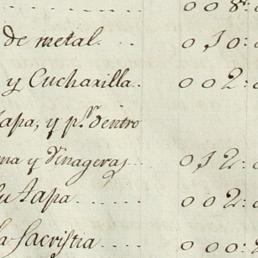 . . . . . . 0 0 8:
de metal . . . 0 10:
y Cucharilla . . 0 0 2:
tapa, y p.r dentro
ma y Vinageras . . . 0 12:
su tapa . . . . . 0 0 2:
la Sacristia . . . . . 0 0 0: